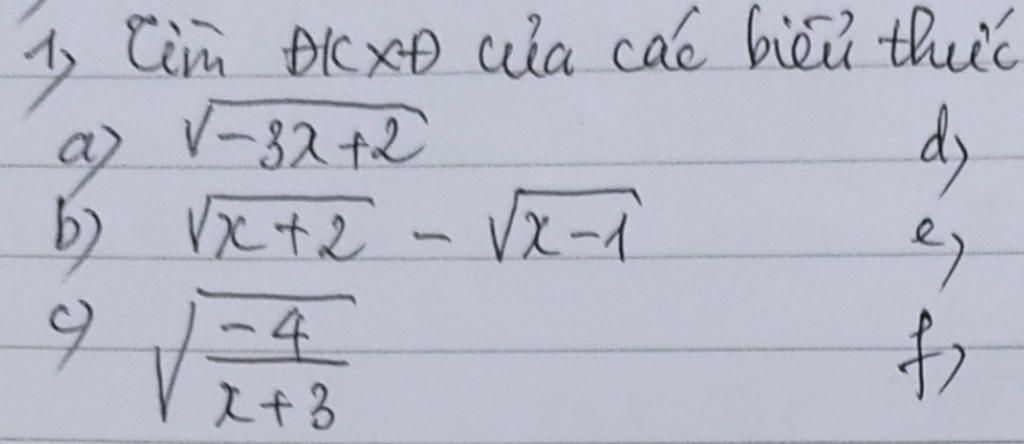 1) Tìm ĐKXĐ của các biểu thức
a) √(-3x+2) d)
b) √(x+2) - √(x-1) e)
c) √(-4/(x+3)) f)